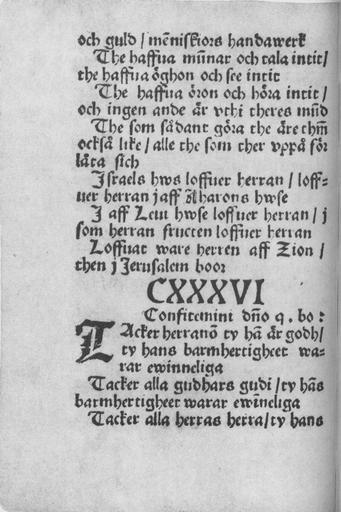 och guld / mēniskiors handawerk
The haffua mūnar och tala intit/
the haffua öghon och see intit
The haffua öron och höra intit /
och ingen ande är vthi theres mūd
The som sådant göra the äre thm̄
också like / alle the som ther vppå för
låta sich
Israels hws loffuer herran / loff-
uer herran j aff Aharons hwse
J aff Leui hwse loffuer herran / j
som herran fructen loffuer herran
Loffuat ware herren aff Zion /
then j Jerusalem boor
CXXXVI
Confitemini dño q. bo:
TAcker herranō ty hā är godh/
ty hans barmhertigheet wa-
rar ewinneliga
Tacker alla gudhars gudi / ty hās
barmhertigheet warar ewīneliga
Tacker alla herras herra / ty hans